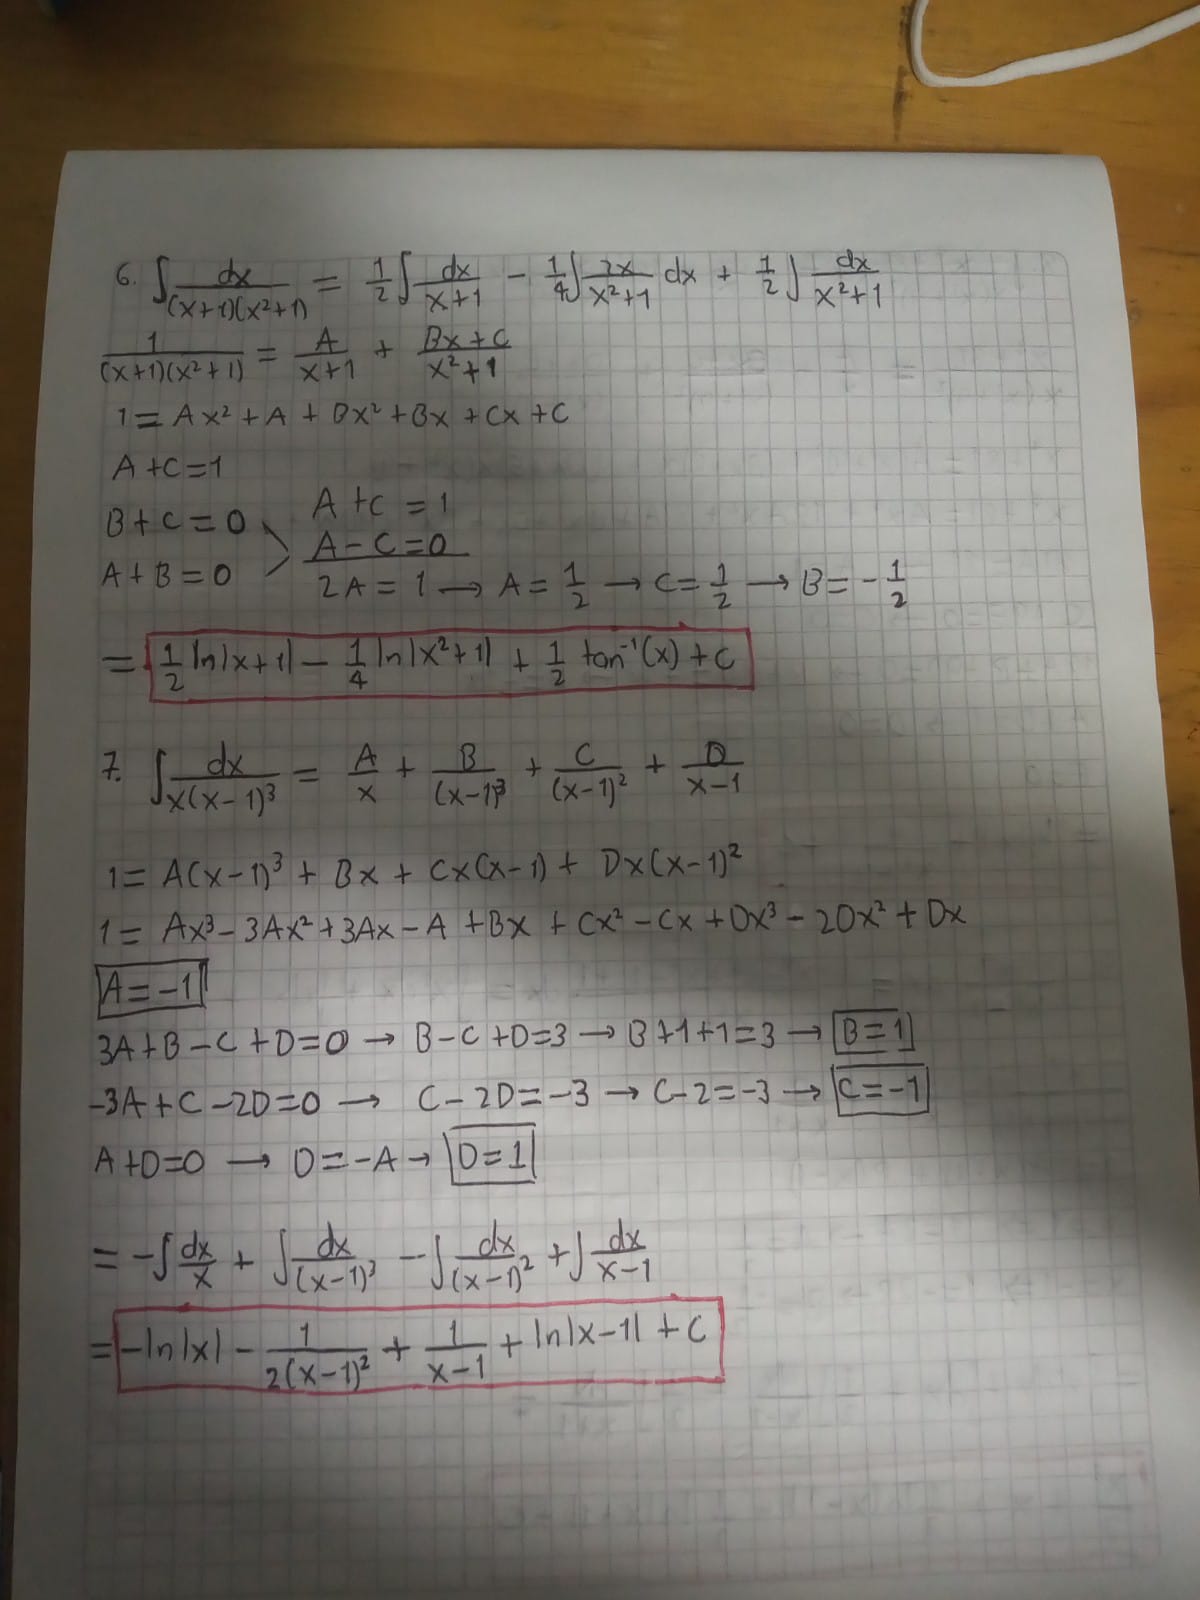 6. ∫ dx/((x+1)(x²+1)) = 1/2 ∫ dx/(x+1) - 1/4 ∫ 2x/(x²+1) dx + 1/2 ∫ dx/(x²+1)
1/((x+1)(x²+1)) = A/(x+1) + (Bx+C)/(x²+1)
1 = Ax² + A + Bx² + Bx + Cx + C
A + C = 1
B + C = 0
A + B = 0
A + C = 1
A - C = 0
2A = 1 → A = 1/2 → C = 1/2 → B = -1/2
= 1/2 ln|x+1| - 1/4 ln|x²+1| + 1/2 tan⁻¹(x) + C
7. ∫ dx/(x(x-1)³) = A/x + B/(x-1)³ + C/(x-1)² + D/(x-1)
1 = A(x-1)³ + Bx + Cx(x-1) + Dx(x-1)²
1 = Ax³ - 3Ax² + 3Ax - A + Bx + Cx² - Cx + Dx³ - 2Dx² + Dx
A = -1
3A + B - C + D = 0 → B - C + D = 3 → B + 1 + 1 = 3 → B = 1
-3A + C - 2D = 0 → C - 2D = -3 → C - 2 = -3 → C = -1
A + D = 0 → D = -A → D = 1
= -∫ dx/x + ∫ dx/(x-1)³ - ∫ dx/(x-1)² + ∫ dx/(x-1)
= -ln|x| - 1/(2(x-1)²) + 1/(x-1) + ln|x-1| + C